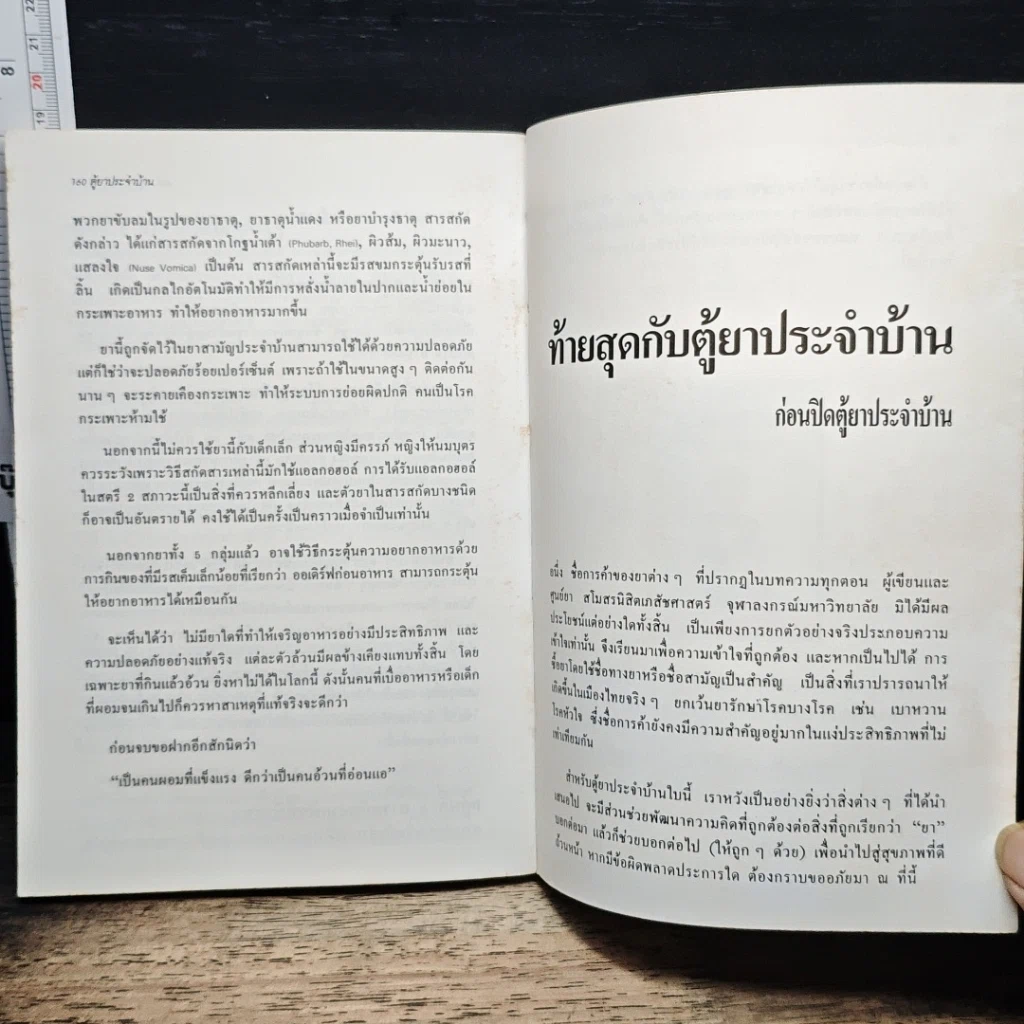 160 ตู้ยาประจำบ้าน
พวกยาขับลมในรูปของยาธาตุ, ยาธาตุน้ำแดง หรือยาบำรุงธาตุ สารสกัด
ดังกล่าว ได้แก่สารสกัดจากโกฐน้ำเต้า (Phubarb, Rhei), ผิวส้ม, ผิวมะนาว,
แสลงใจ (Nuse Vomica) เป็นต้น สารสกัดเหล่านี้จะมีรสขมกระตุ้นรับรสที่
ลิ้น เกิดเป็นกลไกอัตโนมัติทำให้มีการหลั่งน้ำลายในปากและน้ำย่อยใน
กระเพาะอาหาร ทำให้อยากอาหารมากขึ้น
ยานี้ถูกจัดไว้ในยาสามัญประจำบ้านสามารถใช้ได้ด้วยความปลอดภัย
แต่ก็ใช่ว่าจะปลอดภัยร้อยเปอร์เซ็นต์ เพราะถ้าใช้ในขนาดสูง ๆ ติดต่อกัน
นาน ๆ จะระคายเคืองกระเพาะ ทำให้ระบบการย่อยผิดปกติ คนเป็นโรค
กระเพาะห้ามใช้
นอกจากนี้ไม่ควรใช้ยานี้กับเด็กเล็ก ส่วนหญิงมีครรภ์ หญิงให้นมบุตร
ควรระวังเพราะวิธีสกัดสารเหล่านี้มักใช้แอลกอฮอล์ การได้รับแอลกอฮอล์
ในสตรี 2 สภาวะนี้เป็นสิ่งที่ควรหลีกเลี่ยง และตัวยาในสารสกัดบางชนิด
ก็อาจเป็นอันตรายได้ คงใช้ได้เป็นครั้งเป็นคราวเมื่อจำเป็นเท่านั้น
นอกจากยาทั้ง 5 กลุ่มแล้ว อาจใช้วิธีกระตุ้นความอยากอาหารด้วย
การกินของที่มีรสเค็มเล็กน้อยที่เรียกว่า ออเดิร์ฟก่อนอาหาร สามารถกระตุ้น
ให้อยากอาหารได้เหมือนกัน
จะเห็นได้ว่า ไม่มียาใดที่ทำให้เจริญอาหารอย่างมีประสิทธิภาพ และ
ความปลอดภัยอย่างแท้จริง แต่ละตัวล้วนมีผลข้างเคียงแทบทั้งสิ้น โดย
เฉพาะยาที่กินแล้วอ้วน ยิ่งหาไม่ได้ในโลกนี้ ดังนั้นคนที่เบื่ออาหารหรือเด็ก
ที่ผอมจนเกินไปก็ควรหาสาเหตุที่แท้จริงจะดีกว่า
ก่อนจบขอฝากอีกสักนิดว่า
“เป็นคนผอมที่แข็งแรง ดีกว่าเป็นคนอ้วนที่อ่อนแอ”
ท้ายสุดกับตู้ยาประจำบ้าน
ก่อนปิดตู้ยาประจำบ้าน
อนึ่ง ชื่อการค้าของยาต่าง ๆ ที่ปรากฏในบทความทุกตอน ผู้เขียนและ
ศูนย์ยา สโมสรนิสิตเภสัชศาสตร์ จุฬาลงกรณ์มหาวิทยาลัย มิได้มีผล
ประโยชน์แต่อย่างใดทั้งสิ้น เป็นเพียงการยกตัวอย่างจริงประกอบความ
เข้าใจเท่านั้น จึงเรียนมาเพื่อความเข้าใจที่ถูกต้อง และหากเป็นไปได้ การ
ซื้อยาโดยใช้ชื่อทางยาหรือชื่อสามัญเป็นสำคัญ เป็นสิ่งที่เราปรารถนาให้
เกิดขึ้นในเมืองไทยจริง ๆ ยกเว้นยารักษาโรคบางโรค เช่น เบาหวาน
โรคหัวใจ ซึ่งชื่อการค้ายังคงมีความสำคัญอยู่มากในแง่ประสิทธิภาพที่ไม่
เท่าเทียมกัน
สำหรับตู้ยาประจำบ้านใบนี้ เราหวังเป็นอย่างยิ่งว่าสิ่งต่าง ๆ ที่ได้นำ
เสนอไป จะมีส่วนช่วยพัฒนาความคิดที่ถูกต้องต่อสิ่งที่ถูกเรียกว่า “ยา”
บอกต่อมา แล้วก็ช่วยบอกต่อไป (ให้ถูก ๆ ด้วย) เพื่อนำไปสู่สุขภาพที่ดี
ถ้วนหน้า หากมีข้อผิดพลาดประการใด ต้องกราบขออภัยมา ณ ที่นี้
8
22
21
20
19